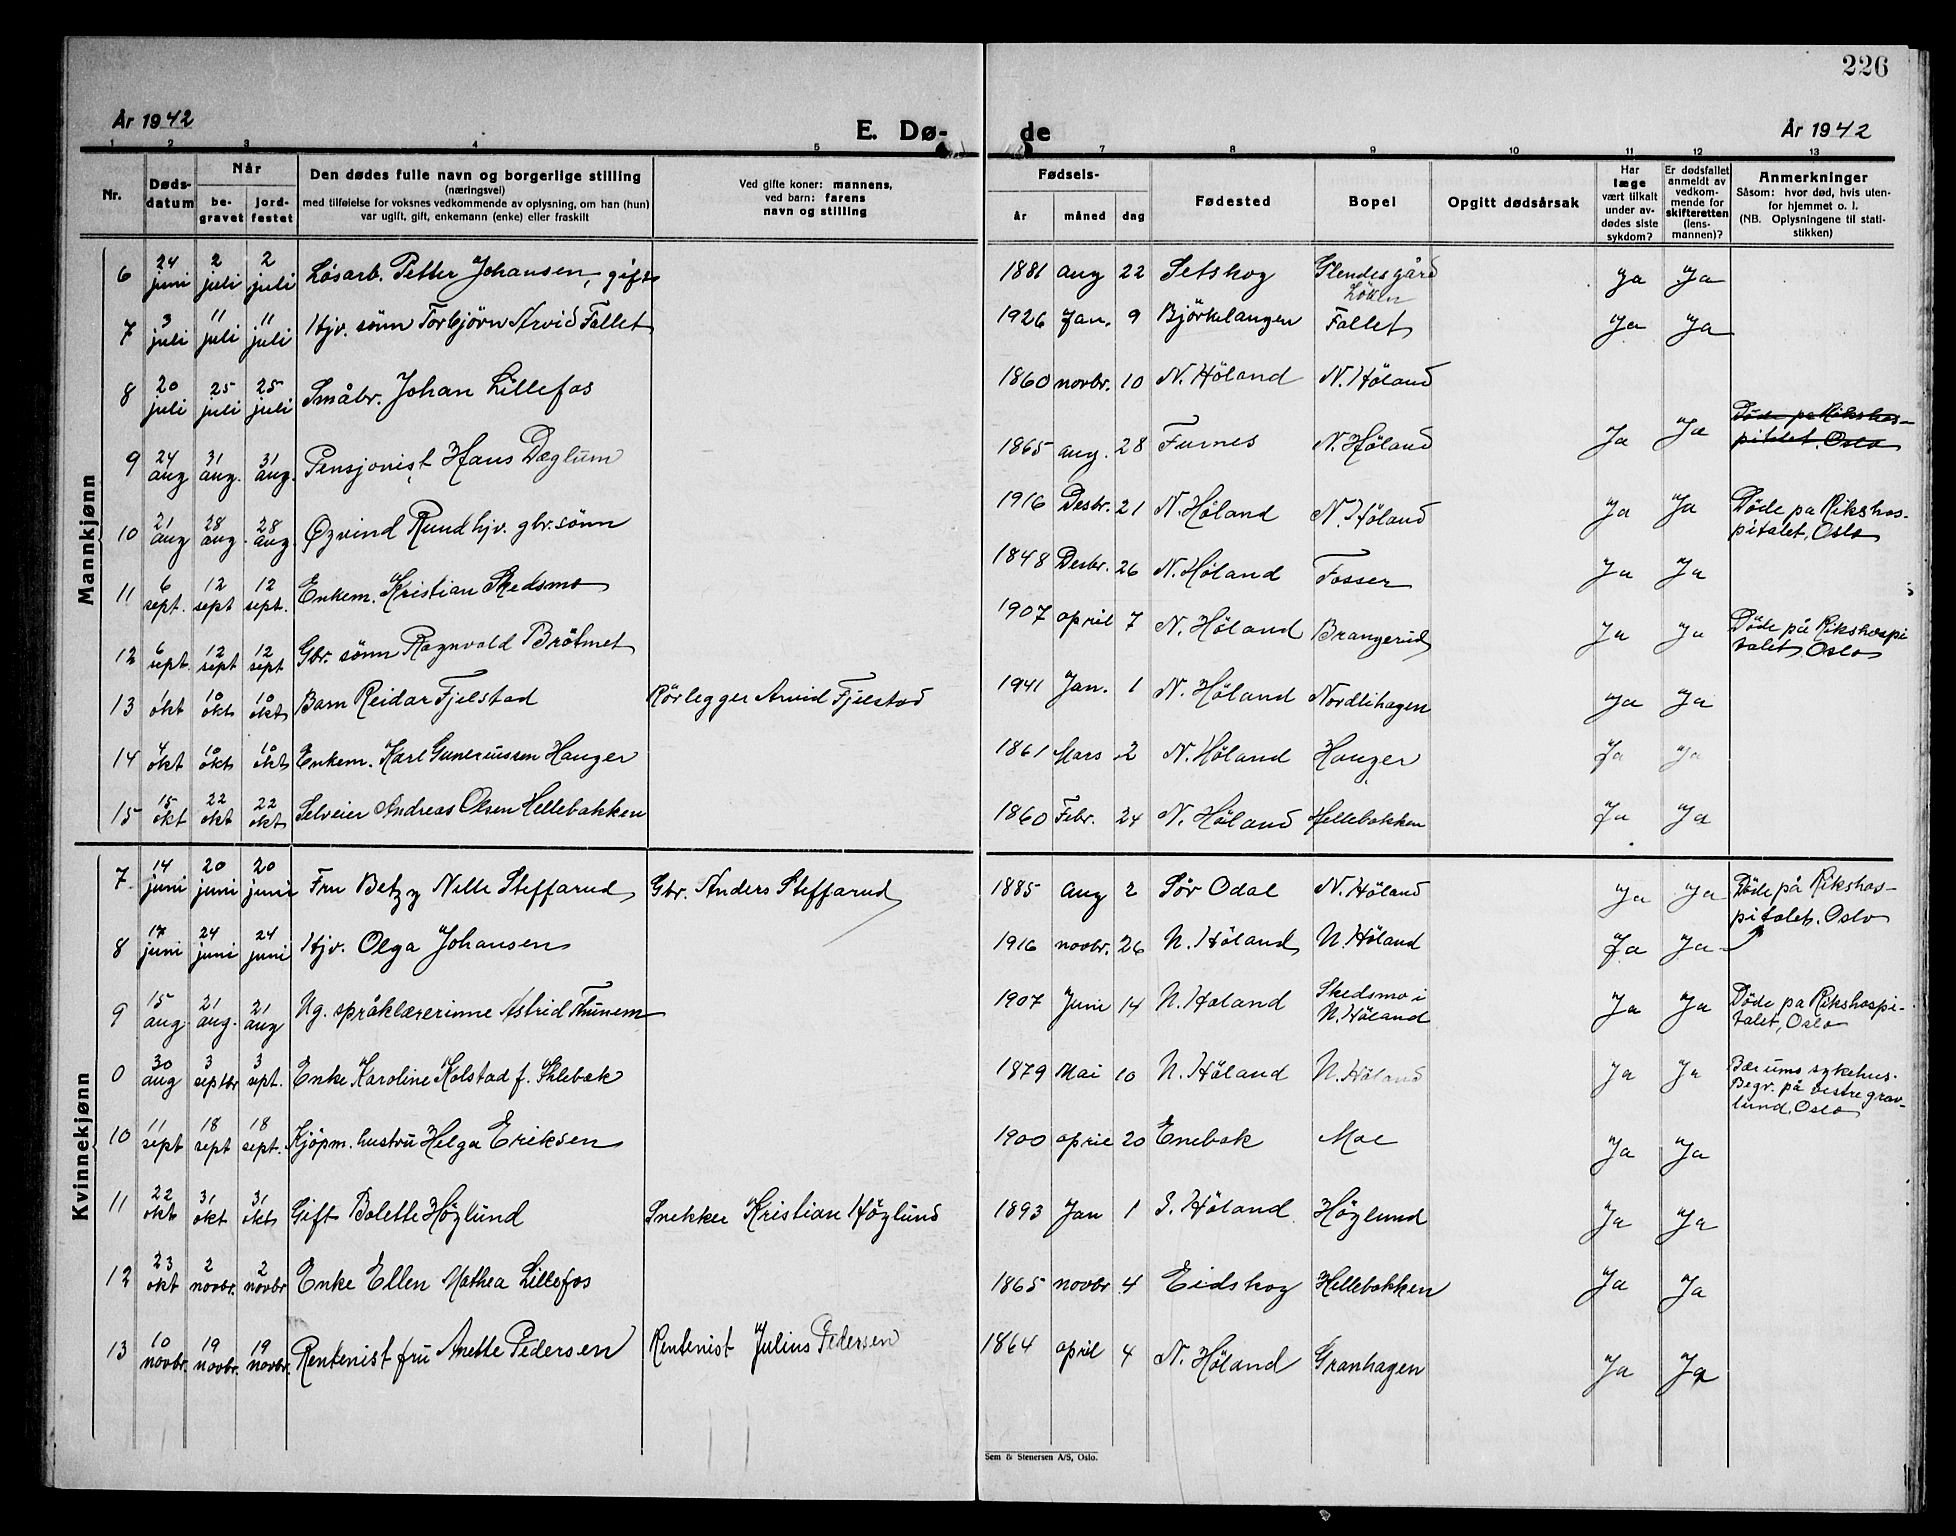 226
År 1942
E. Dø-
de
År 1942
1 2 3 4 5 7 8 9 10 11 12 13
Nr.
Døds-
datum
Når
be-
gravet
jord-
festet
Den dødes fulle navn og borgerlige stilling
(næringsvei)
med tilføielse for voksnes vedkommende av oplysning, om han (hun)
var ugift, gift, enkemann (enke) eller fraskilt
Ved gifte koner: mannens,
ved barn: farens
navn og stilling
Fødsels-
år måned dag
Fødested
Bopel
Opgitt dødsårsak
Har
læge
vært tilkalt
under av-
dødes siste
sykdom?
Er dødsfallet
anmeldt av
vedkom-
mende for
skifteretten
(lens-
mannen)?
Anmerkninger
Såsom: hvor død, hvis uten-
for hjemmet o. l.
(NB. Oplysningene til stati-
stikken)
Mannkjønn
6 24 juni 2 juli 2 juli Løsarb. Petter Johansen, gift 1881 aug 22 Setskog Glendesgård Löken Ja Ja
7 3 juli 11 juli 11 juli Hjv. sönn Torbjörn Arvid Fallet 1926 Jan. 9 Björkelangen Fallet Ja Ja
8 20 juli 25 juli 25 juli Småbr. Johan Lillefos 1860 novbr. 10 N. Höland N. Höland
9 24 aug 31 aug. 31 aug. Pensjonist Hans Dæglum 1865 aug. 28 Furnes N. Höland Ja Ja Döde pa Rikshos-
pitalet. Oslo
10 21 aug 28 aug. 28 aug. Øyvind Rund hjv. gbr. sönn 1916 Desbr. 21 N. Höland N. Höland Ja Ja Döde pa Rikshos-
pitalet, Oslo
11 6 sept. 12 sept 12 sept. Enkem. Kristian Skedsmo 1848 Desbr. 26 N. Höland Fosser Ja Ja
12 6 sept. 12 sept 12 sept Gbr. sönn Ragnvald Bråtmet 1907 april 7 N. Höland Brangerud Ja Ja Döde på Rikshospi
talet. Oslo
13 1 okt 10 okt 10 okt Barn Reidar Fjelstad Rörlegger Arvid Fjelstad 1941 Jan. 1 N. Höland Nordlihagen Ja Ja
14 4 okt 10 okt 10 okt Enkem. Karl Guneriussen Hanger 1861 Mars 2 N. Höland Hanger Ja Ja
15 15 okt 22 okt 22 okt Selveier Andreas Olsen Hellebakken 1860 Febr. 24 N. Höland Hellebakken Ja Ja
Kvinnekjønn
7 14 juni 20 juni 20 juni Fru Betzy Nille Steffarud Gbr. Anders Steffarud 1885 aug 2 Sør Odal N. Höland Ja Ja Döde på Rikshos-
pitalet. Oslo
8 17 juni 24 juni 24 juni Hjv. Olga Johansen 1916 novbr. 26 N. Höland N. Höland Ja Ja
9 15 aug 21 aug. 21 aug Ug. språklærerinne Astrid Thunem 1907 Juni 14 N. Høland Skedsmo i
N. Höland Ja Ja Döde pa Rikshospi-
talet, Oslo
0 30 aug 3 septbr 3 sept. Enke Karoline Kolstad f. Schlebæk 1879 Mai 10 N. Höland N. Höland Ja Ja Bærums sykehus.
Begr. på vestre grav-
lund. Oslo
10 11 sept 18 sept 18 sept. Kjöpm. hustru Helga Eriksen 1900 april 20 Enebak Moe Ja Ja
11 22 okt 31 okt 31 okt Gift Bolette Höglund Snekker Kristian Höglund 1893 Jan 1 S. Höland Höglund Ja Ja
12 23 okt 2 novbr. 2 novbr Enke Ellen Mathea Lillefos 1865 novbr 4 Eidskog Hellebakken Ja Ja
13 10 novbr. 19 novbr. 19 novbr. Rentenist fru Anette Pedersen Rentenist Julius Pedersen 1864 april 4 N. Höland Granhagen Ja Ja
Sem & Stenersen A/S, Oslo.